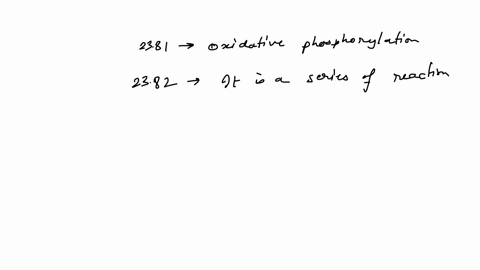 23.81 → oxidative phosphorylation
23.82 → It is a series of reaction